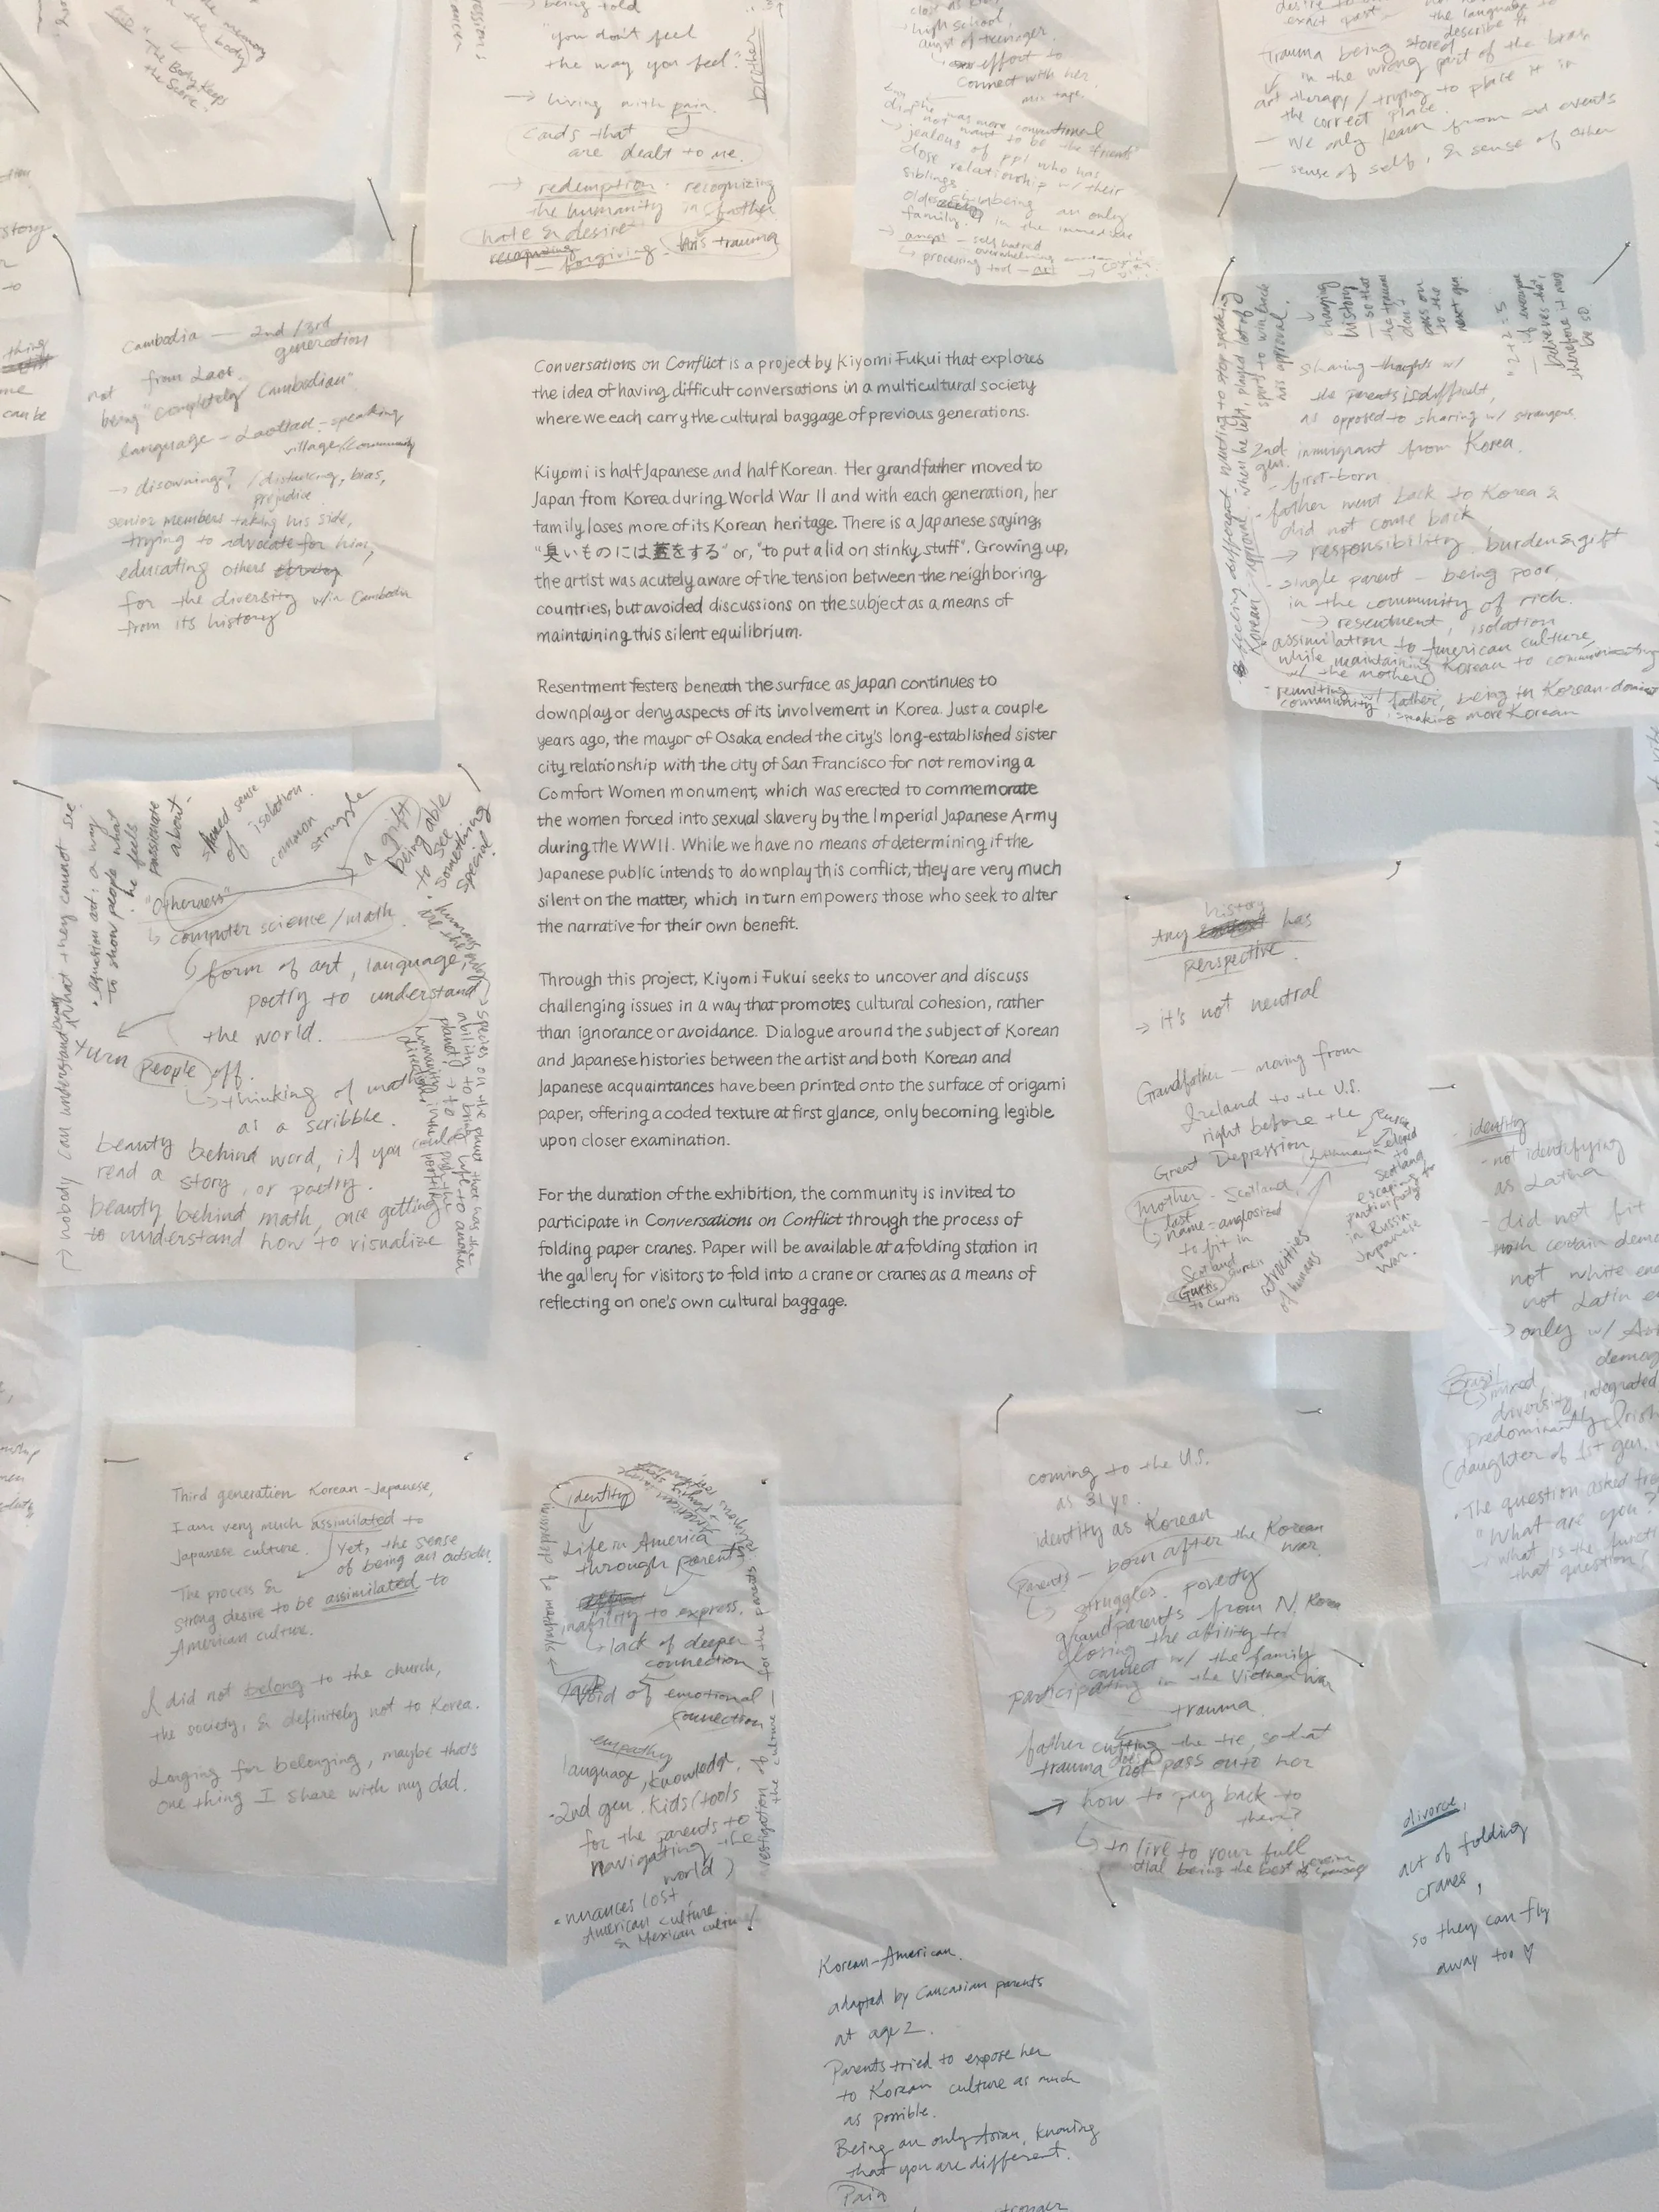 the memory
the body
"the Body Keeps
the Score"
being told
"you don't feel
the way you feel."
brother
→ living with pain.
Cards that
are dealt to me.
→ redemption: recognizing
the humanity in father
hate & desire
forgiving his trauma
high school,
angst of teenager.
effort to
connect with her
mix tape.
jealous of ppl who has
close relationship w/ their
siblings
being an only
family. in the immediate
→ angst - self hatred
overwhelming
↳ processing tool - art
exact past
the language to
describe it
Trauma being stored
in the wrong part of the brain
art therapy / trying to place it in
the correct place.
- We only learn from sad events
- sense of self, & sense of other
story
thing
me
can be
Cambodia — 2nd/3rd
generation
from Laos.
not
being "completely Cambodian".
language - Laotian-speaking
village/community
→ disowning? / distancing, bias,
prejudice
senior members taking his side,
trying to advocate for him,
educating others
for the diversity w/in Cambodia
from its history
Conversations on Conflict is a project by Kiyomi Fukui that explores
the idea of having difficult conversations in a multicultural society
where we each carry the cultural baggage of previous generations.
Kiyomi is half Japanese and half Korean. Her grandfather moved to
Japan from Korea during World War II and with each generation, her
family loses more of its Korean heritage. There is a Japanese saying,
"臭いものには蓋をする" or, "to put a lid on stinky stuff". Growing up,
the artist was acutely aware of the tension between the neighboring
countries, but avoided discussions on the subject as a means of
maintaining this silent equilibrium.
Resentment festers beneath the surface as Japan continues to
downplay or deny aspects of its involvement in Korea. Just a couple
years ago, the mayor of Osaka ended the city's long-established sister
city relationship with the city of San Francisco for not removing a
Comfort Women monument, which was erected to commemorate
the women forced into sexual slavery by the Imperial Japanese Army
during the WWII. While we have no means of determining if the
Japanese public intends to downplay this conflict, they are very much
silent on the matter, which in turn empowers those who seek to alter
the narrative for their own benefit.
Through this project, Kiyomi Fukui seeks to uncover and discuss
challenging issues in a way that promotes cultural cohesion, rather
than ignorance or avoidance. Dialogue around the subject of Korean
and Japanese histories between the artist and both Korean and
Japanese acquaintances have been printed onto the surface of origami
paper, offering a coded texture at first glance, only becoming legible
upon closer examination.
For the duration of the exhibition, the community is invited to
participate in Conversations on Conflict through the process of
folding paper cranes. Paper will be available at a folding station in
the gallery for visitors to fold into a crane or cranes as a means of
reflecting on one's own cultural baggage.
changing
history
- so that
the trauma
don't
pass on
to the
next gen
"2+2=5
- if everyone
believes that,
therefore it may
be so
feeling different wanting to stop speaking
Korean
approval. when he left, played lot of
sports to win back
his approval.
sharing thoughts w/
the parents is difficult,
as opposed to sharing w/ strangers.
2nd immigrant from Korea.
gen.
- first-born
- father went back to Korea &
did not come back
→ responsibility. burden & gift
- single parent - being poor,
in the community of rich.
→ resentment, isolation
assimilation to American culture,
while maintaining Korean to communicating
w/ the mother
- reuniting w/ father, being in Korean-dominant
community, speaking more Korean
→ nobody can understand what they cannot see
• equation art: a way
to show people what
he feels
passionate
about.
shared sense
of isolation.
common
struggle
a gift
being able
to see
something
special
"Otherness"
↳ computer science/math.
form of art, language,
poetry to understand
the world.
turn people off.
↳ thinking of math
as a scribble.
beauty behind word, if you could
read a story, or poetry.
beauty behind math, once getting
to understand how to visualize
• humans
are the only
→ species on the planet that has the
ability to bring life to another
planet → to push the
humanity in the positive
direction
history
Any has
perspective.
→ it's not neutral
Grandfather - moving from
Ireland to the U.S.
right before the
Great Depression
Lithuania
eloped
to
Scotland
escaping for
participating
in Russia-
Japanese
war.
mother - Scotland,
last
name = anglosized
to fit in
Scotland
to Curtis
atrocities
of humans
identity
- not identifying
as Latina
- did not fit
certain
not white
not Latin
→ only w/
Brazil
↳ mixed,
diversity, integrated
predominantly
(daughter of 1st gen.
• The question asked
"What are you?"
- what is the
that question?
Third generation Korean-Japanese,
I am very much assimilated to
Japanese culture. Yet, the sense
of being an outsider.
The process &
strong desire to be assimilated to
American culture.
I did not belong to the church,
the society, & definitely not to Korea.
Longing for belonging, maybe that's
one thing I share with my dad.
identity
Life in America
through parents
inability to express.
↳ lack of deeper
connection
void of emotional
connection
symptom of depression
empathy
language, knowledge,
• 2nd gen. kids (tools
for the parents to
navigating the
world)
• nuances lost
American culture
& Mexican culture
the culture — for the parents
coming to the U.S.
as 31 yo.
identity as Korean
Parents - born after the Korean
war.
↳ struggles. poverty
grandparents from N. Korea
losing the ability to
connect w/ the family
participating in the Vietnam war
trauma.
father cutting the tie, so that
trauma does not pass onto her
→ how to pay back to
them?
↳ to live to your full
being the best
divorce,
act of folding
cranes,
so they can fly
away too ♡
Korean-American.
adapted by Caucasian parents
at age 2.
Parents tried to expose her
to Korean culture as much
as possible.
Being an only Asian, knowing
that you are different.
Pain
stronger